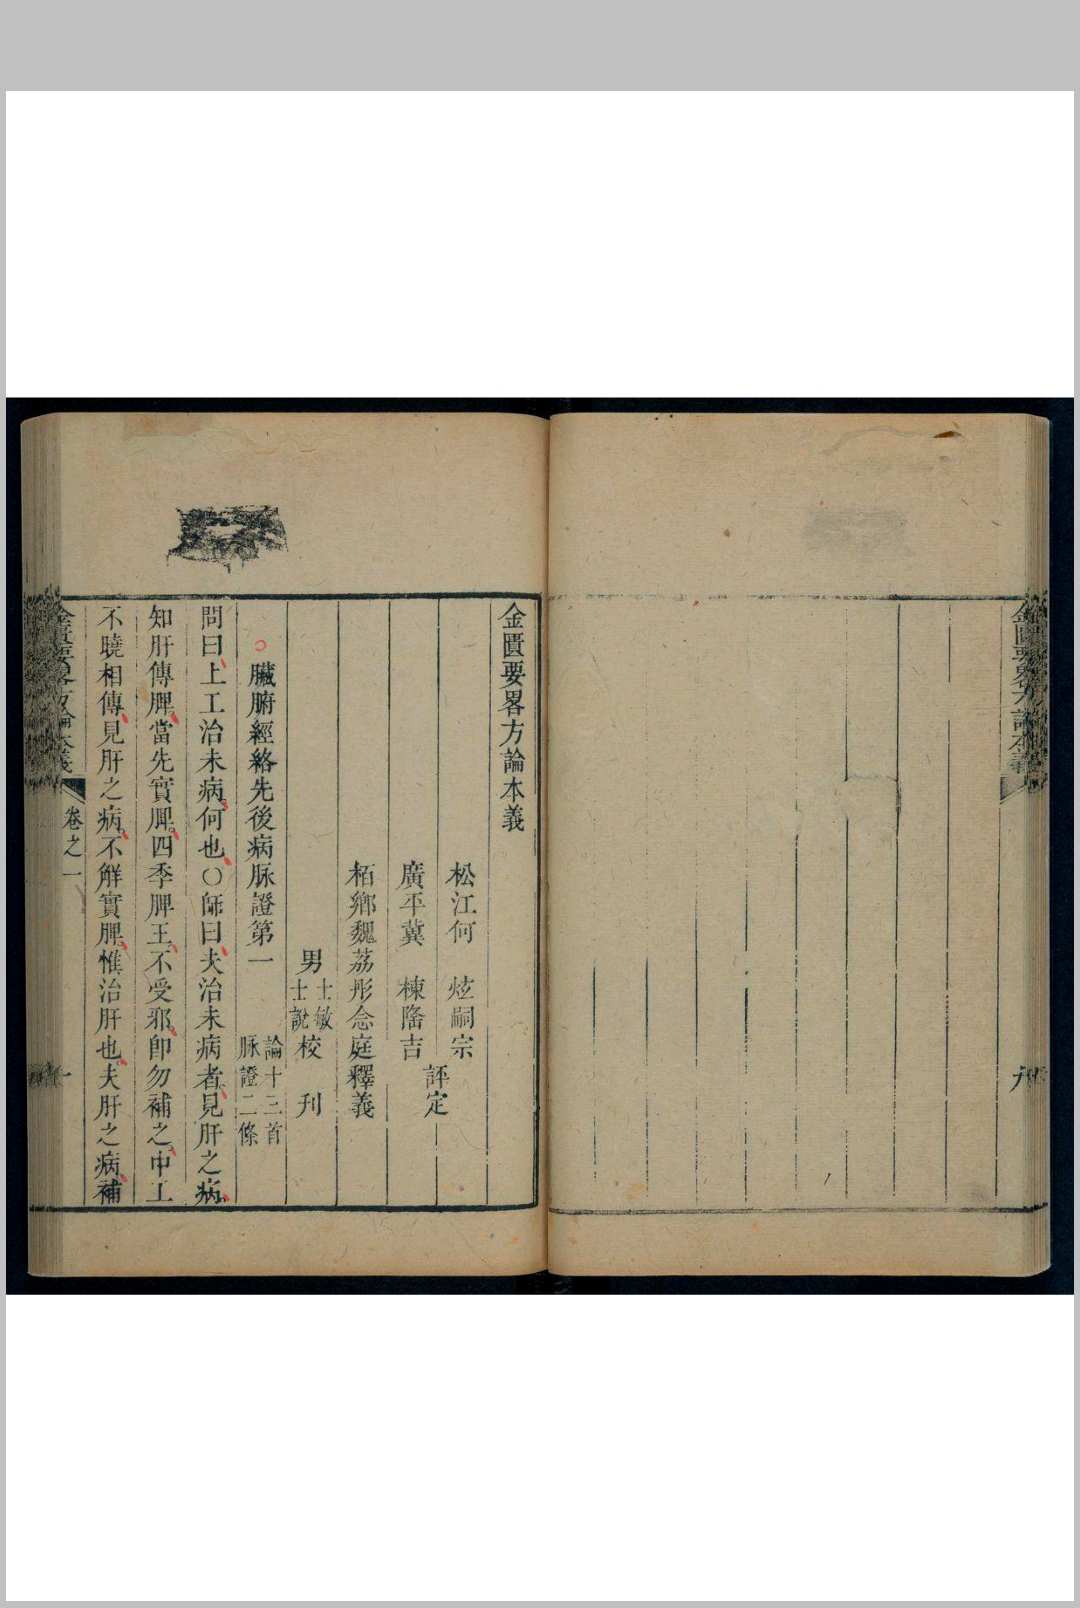 金匱要畧方論本義
九
金匱要畧方論本義
松江何　炫嗣宗
廣平冀　棟隆吉
評定
栢鄉魏荔彤念庭釋義
男士敏士說校　刊
臟腑經絡先後病脉證第一　論十三首脉證二條
問曰上工治未病何也〇師曰夫治未病者見肝之病
知肝傳脾當先實脾四季脾王不受邪卽勿補之中工
不曉相傳見肝之病不觧實脾惟治肝也夫肝之病補
金匱要畧方論本義
卷之一
一